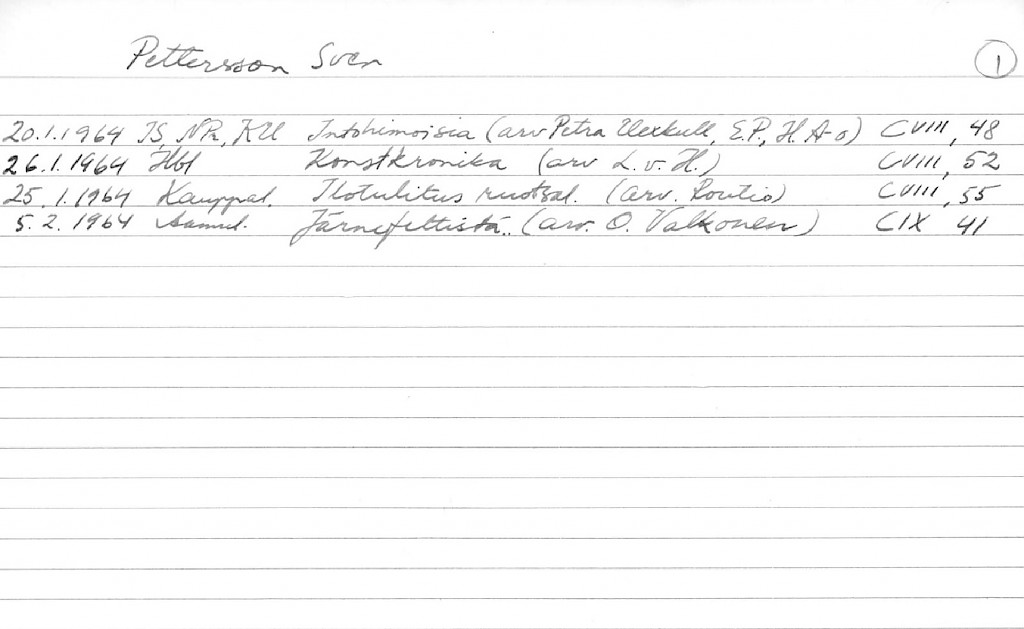 Pettersson Sven
1
20.1.1964 IS, NPr, KU Intohimoisia (arv Petra Uexkull, E.P., H. A-o) CVIII, 48
26.1.1964 Hbl Konstkronika (arv L. v. H.) CVIII, 52
25.1.1964 Kauppal. Ilotulitus ruotsal. (arv. Routio) CVIII, 55
5.2.1964 Aamul. Järnefeltistä.. (arv. O. Valkonen) CIX 41